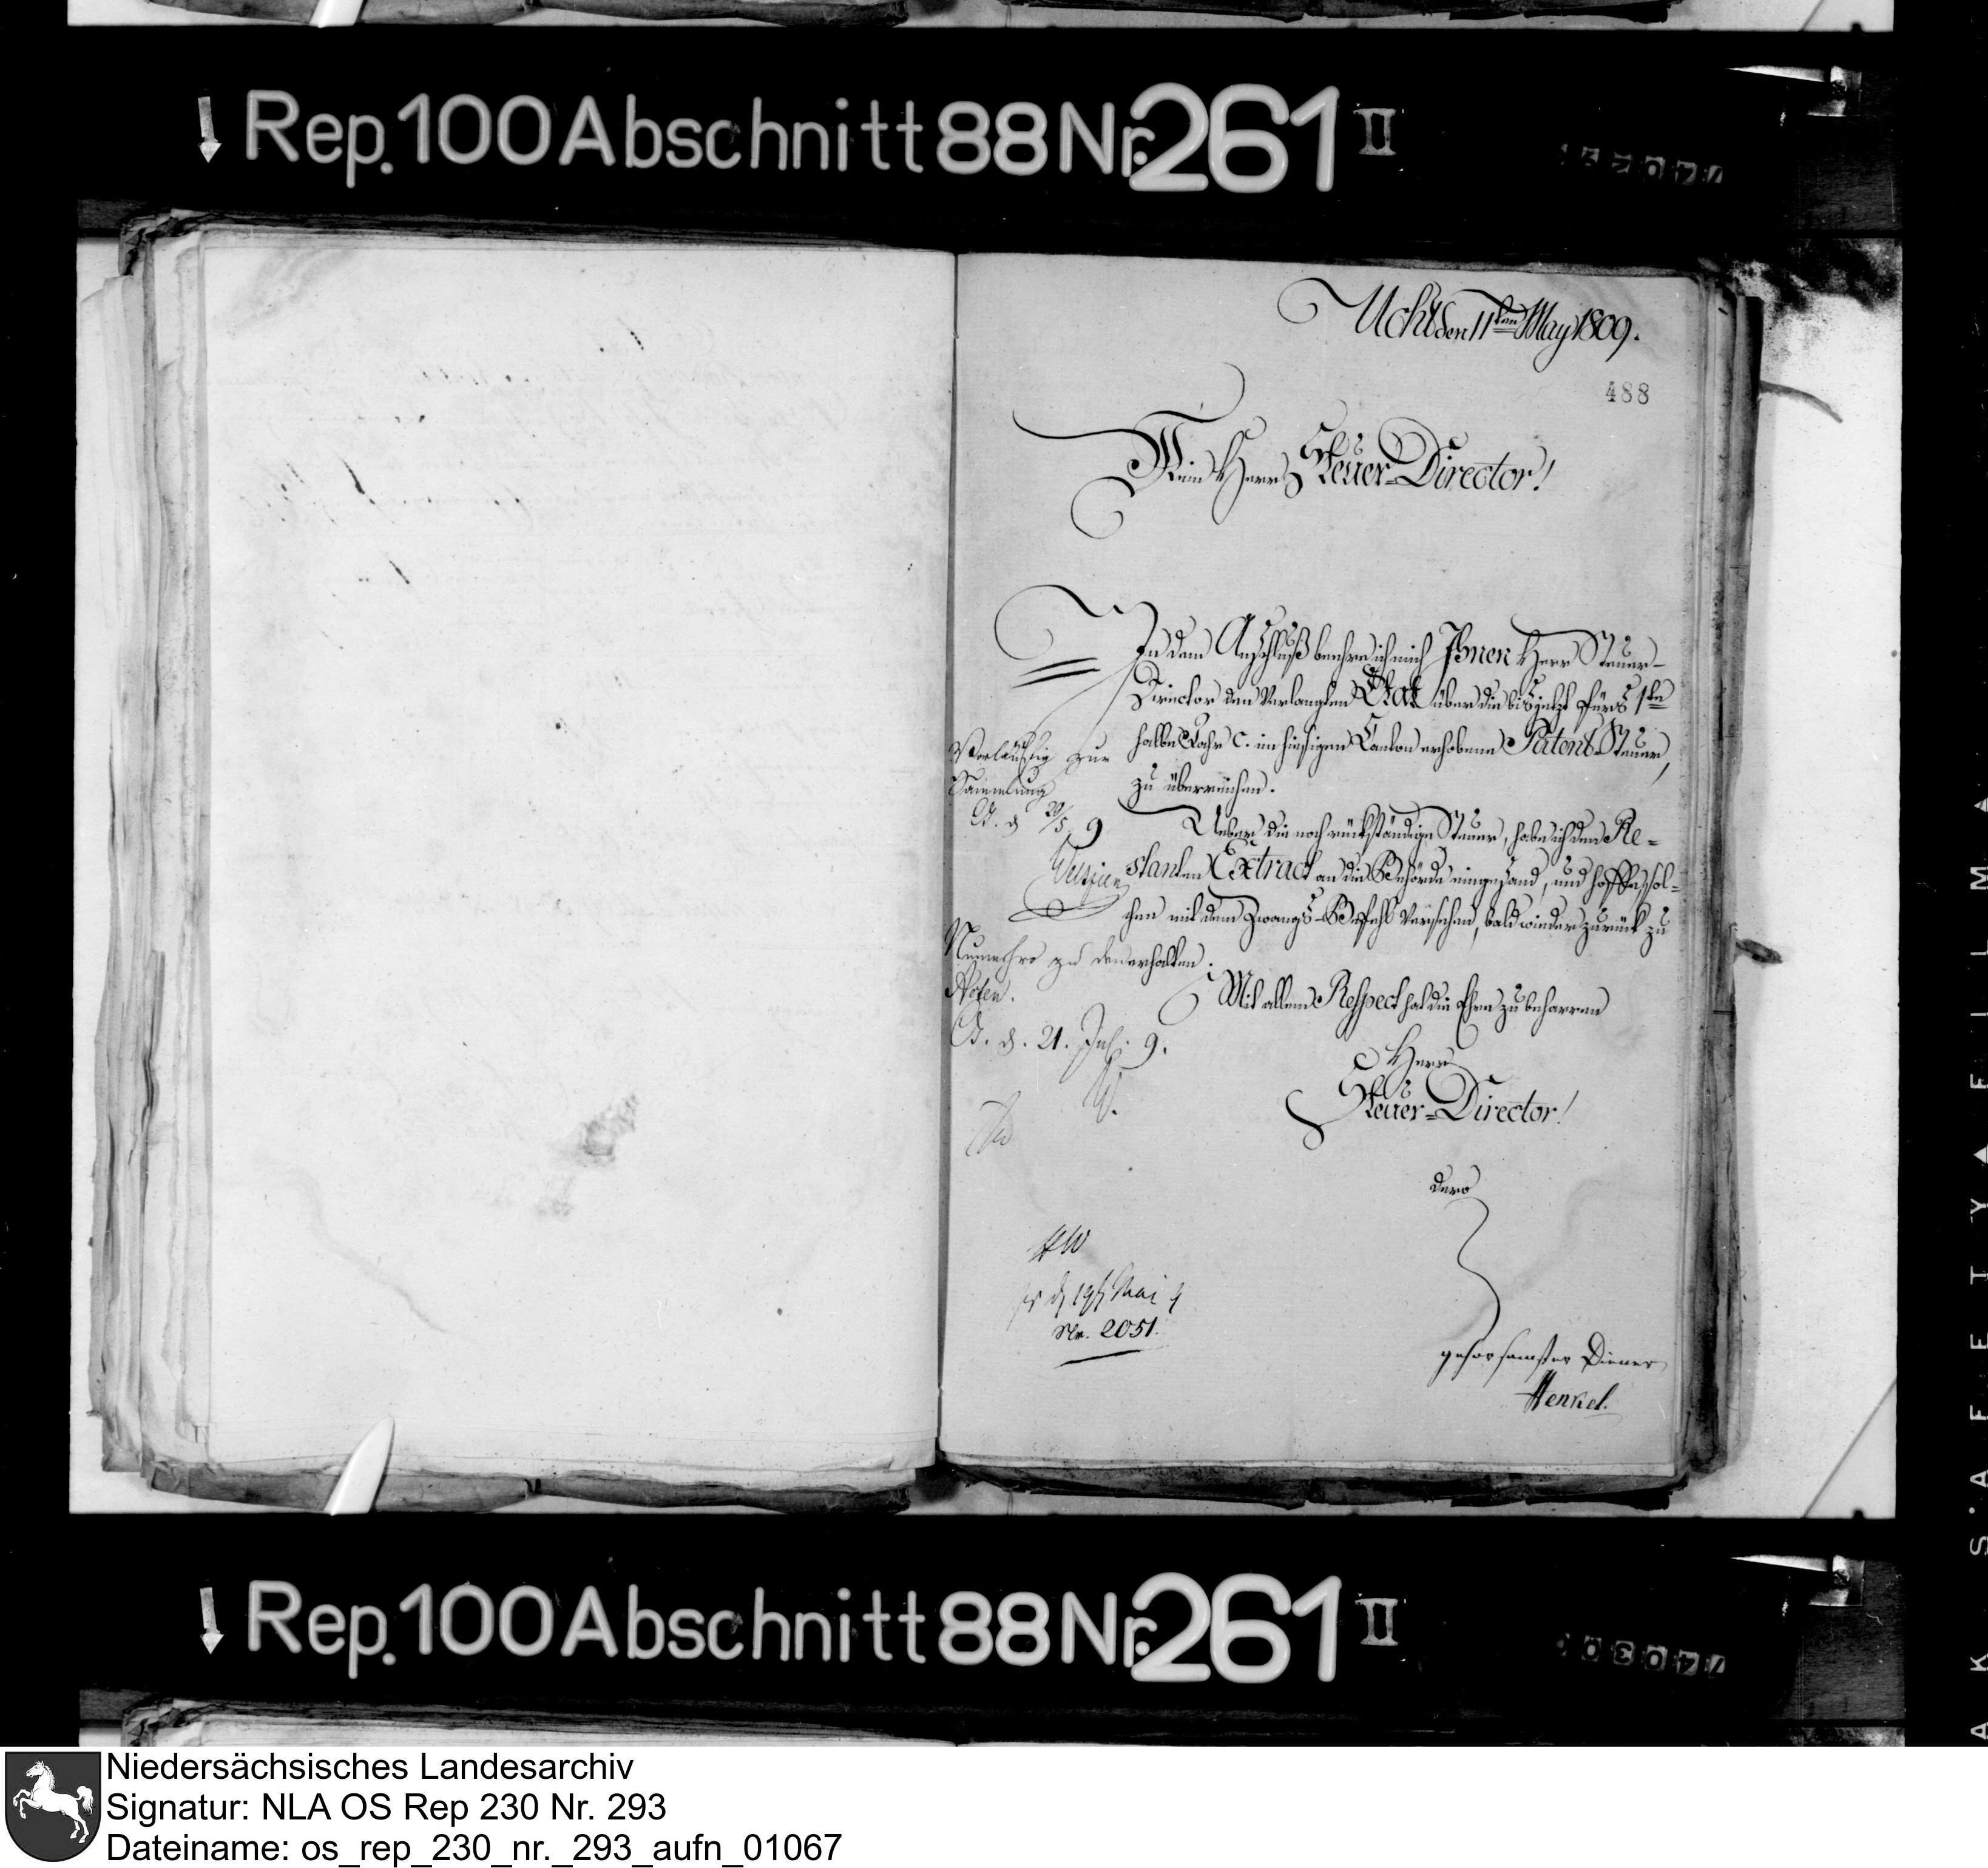 Rep. 100 Abschnitt 88 Nr. 261 II
Ucht den 11ten May 1809.
488
Mein Herr Steuer-Director!
In dem Anschluß beehre ich mich Ihnen Herr Steuer-
Director den verlangten Etat über die bis jetzt fürs 1te
halbe Jahr c. im hiesigen Canton erhobene Patent-Steuer,
zu überreichen.
Ueber die noch rückständige Steuer, habe ich den Re=
stanten Extract an die Behörde eingesand, und hoffe sol=
chen mit dem Zwangs-Befehl versehen, bald wieder zurück zu
erhalten.
Mit allem Respect hat die Ehre zu beharren
Herr
Steuer-Director!
dero
gehorsamster Diener
Henkel.
Vorläufig zur
Sammlung
O. d 20/5 9
Nunmehro zu den
Acten.
O. d. 21. Jul. 9.
W.
ps d 19t Mai 9
Nr. 2051.
Rep. 100 Abschnitt 88 Nr. 261 II
Niedersächsisches Landesarchiv
Signatur: NLA OS Rep 230 Nr. 293
Dateiname: os_rep_230_nr._293_aufn_01067